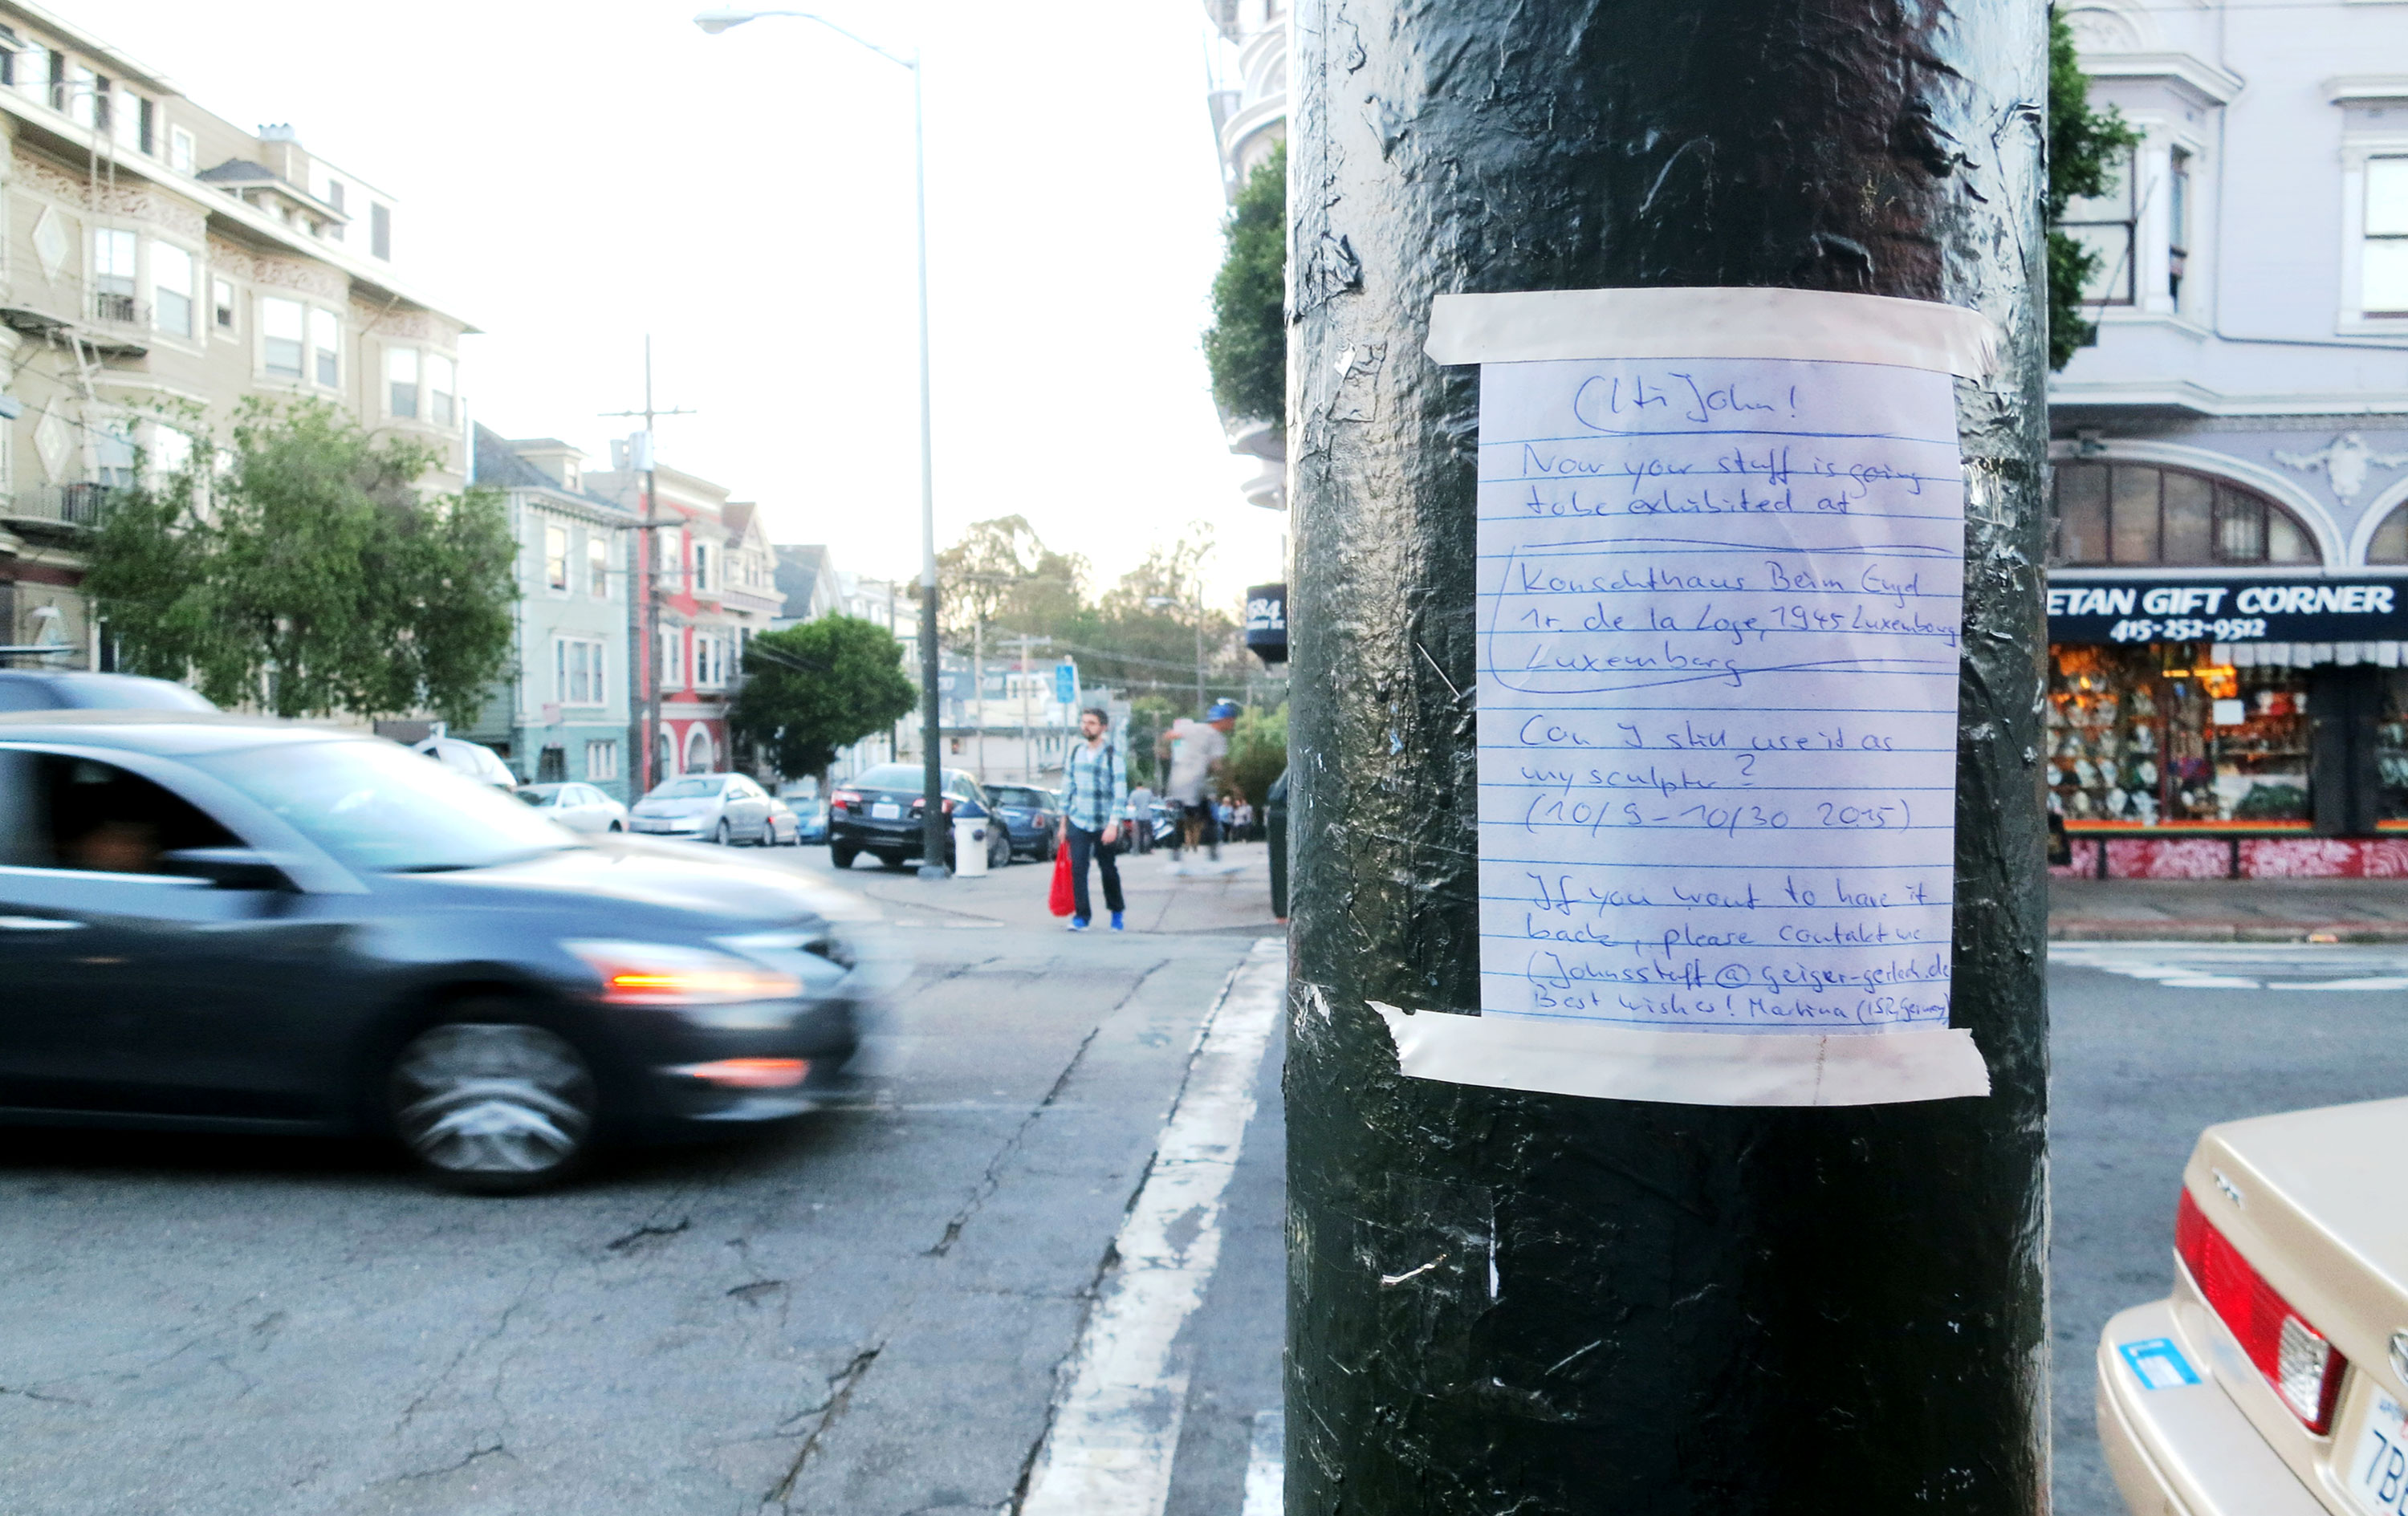 Hi John!
Now your stuff is going
to be exhibited at
Konschthaus Beim Engel
1r. de la Loge, 1945 Luxembourg
Luxemburg
Can I still use it as
my sculptur?
(10/9-10/30 2015)
If you want to have it
back, please contakt me
(Johnsstuff@geiger-gerlach.de
Best wishes! Martina (152, Germany)
ETAN GIFT CORNER
415-252-9512
584
7B